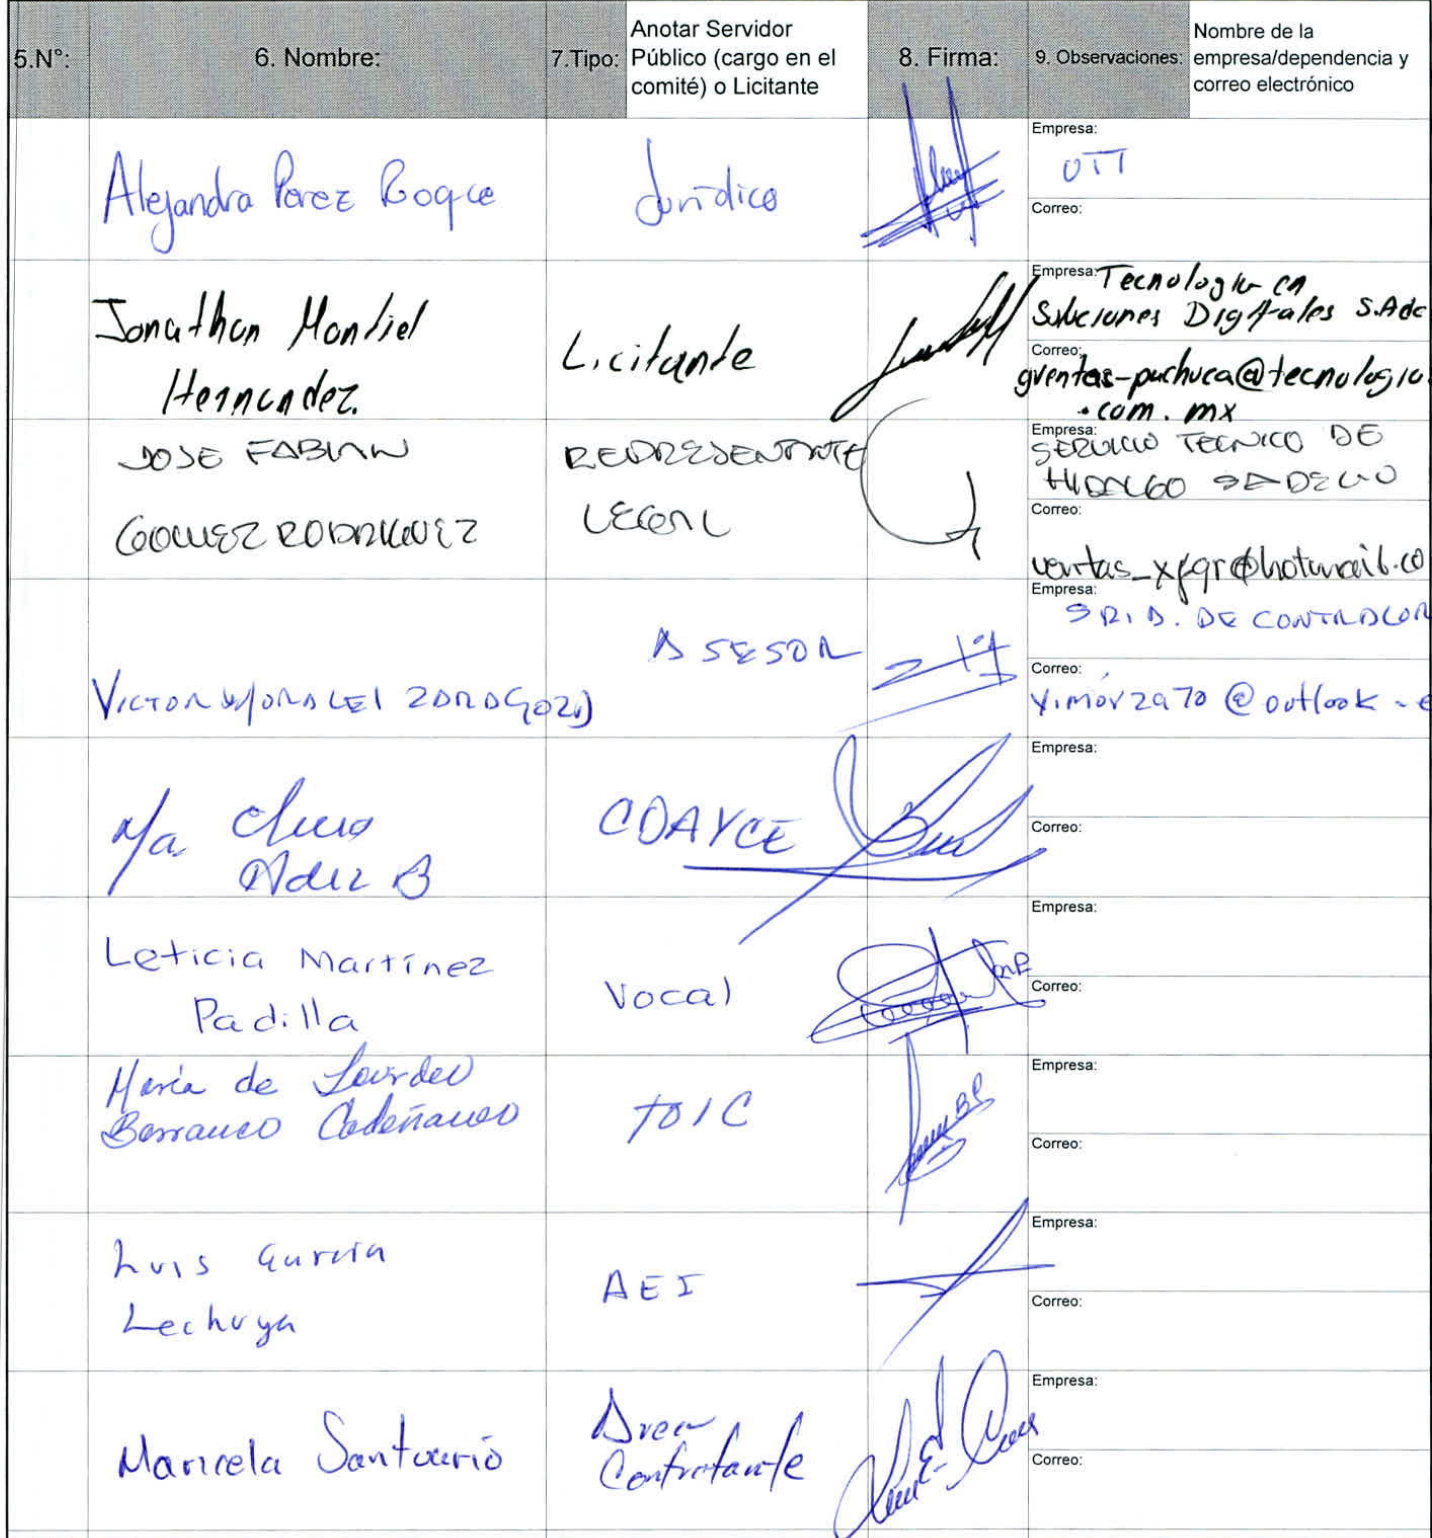 5.N°:
6. Nombre:
7.Tipo:
Anotar Servidor
Público (cargo en el
comité) o Licitante
8. Firma:
9. Observaciones:
Nombre de la
empresa/dependencia y
correo electrónico
Alejandra Perez Roque
Jurídico
Empresa:
UTT
Correo:
Jonathan Montiel
Hernandez.
Licitante
Empresa: Tecnologia en
Soluciones Digitales S.A de
Correo:
gventas-pachuca@tecnologia
.com.mx
JOSE FABIAN
GOMEZ RODRIGUEZ
REPRESENTANTE
LEGAL
Empresa:
SERVICIO TECNICO DE
HIDALGO SA DE CV
Correo:
ventas_xfgr@hotmail.co
VICTOR MORALES ZARAGOZA
ASESOR
Empresa:
DE CONTRALOR
Correo:
vimorza70@outlook.e
Ma.
B
CDAYCE
Empresa:
Correo:
Leticia Martínez
Padilla
Vocal
Empresa:
Correo:
María de Lourdes
Barranco
TOIC
Empresa:
Correo:
Luis Garcia
Lechuga
AEI
Empresa:
Correo:
Maricela Santuario
Area
Contratante
Empresa:
Correo: